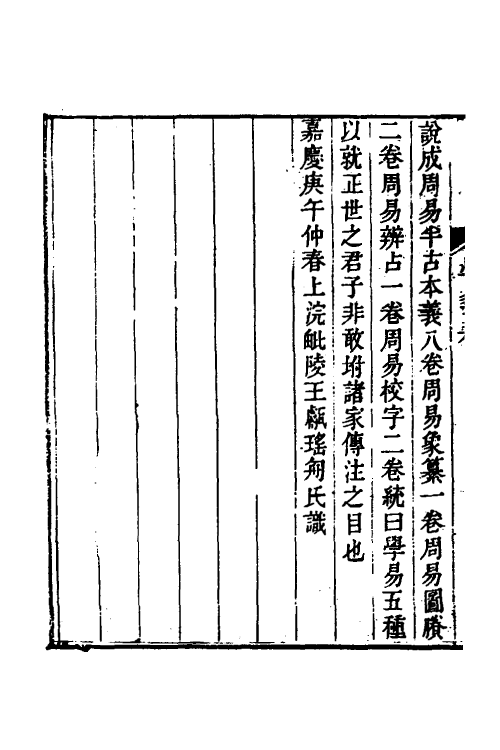 說成周易半古本義八卷周易象纂一卷周易圖賸
二卷周易辨占一卷周易校字二卷統曰學易五種
以就正世之君子非敢坿諸家傳注之目也
嘉慶庚午仲春上浣毗陵王甗瑤舟氏識